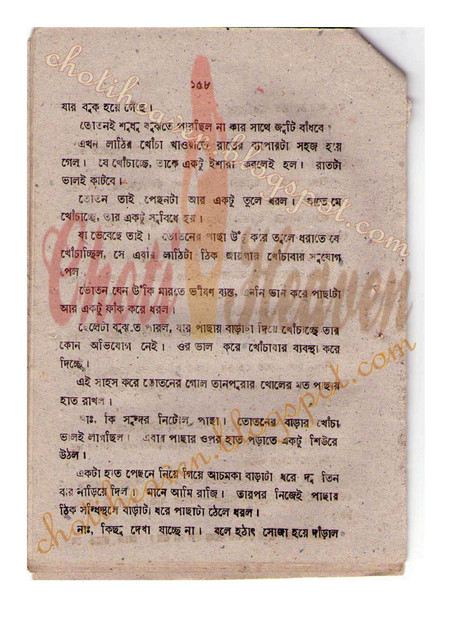 ১৫৮
যার বুক হয়ে গেছে।
তোতনই শুধু বুঝতে পারছিল না কার সাথে জুটি বাঁধবে।
এখন লাঠির খোঁচা খাওয়াতে রাতের ব্যাপারটা সহজ হয়ে
গেল। যে খোঁচাচ্ছে, তাকে একটু ইশারা করলেই হল। রাতটা
ভালই কাটবে।
তোতন তাই পেছনটা আর একটু তুলে ধরল। যাতে যে
খোঁচাচ্ছে, তার একটু সুবিধে হয়।
যা ভেবেছে তাই। তোতনের পাছা উঁচু করে তুলে ধরাতে যে
খোঁচাচ্ছিল, সে এবার লাঠিটা ঠিক জায়গার খোঁচাবার সুযোগ
পেল।
তোতন যেন উঁকি মারতে ভীষণ ব্যস্ত, এমনি ভান করে পাছাটা
আর একটু ফাঁক করে ধরল।
ছেলেটা বুঝতে পারল, যার পাছায় বাড়াটা দিয়ে খোঁচাচ্ছে তার
কোন অভিযোগ নেই। ওর ভাল করে খোঁচাবার ব্যবস্থা করে
দিচ্ছে।
এই সাহস করে তোতনের গোল তানপুরার খোলের মত পাছায়
হাত রাখল।
আঃ, কি সুন্দর নিটোল পাছা। তোতনের বাড়ার খোঁচা
ভালই লাগছিল। এবার পাছার ওপর হাত পড়াতে একটু শিউরে
উঠল।
একটা হাত পেছনে নিয়ে গিয়ে আচমকা বাড়াটা ধরে দু তিন
বার নাড়িয়ে দিল। মানে আমি রাজি। তারপর নিজেই পাছার
ঠিক সন্ধিস্থলে বাড়াটা ধরে পাছাটা ঠেলে ধরল।
নাঃ, কিছু দেখা যাচ্ছে না। বলে হঠাৎ সোজা হয়ে দাঁড়াল
Choti Heaven
chotiheaven.blogspot.com
chotiheaven.blogspot.com